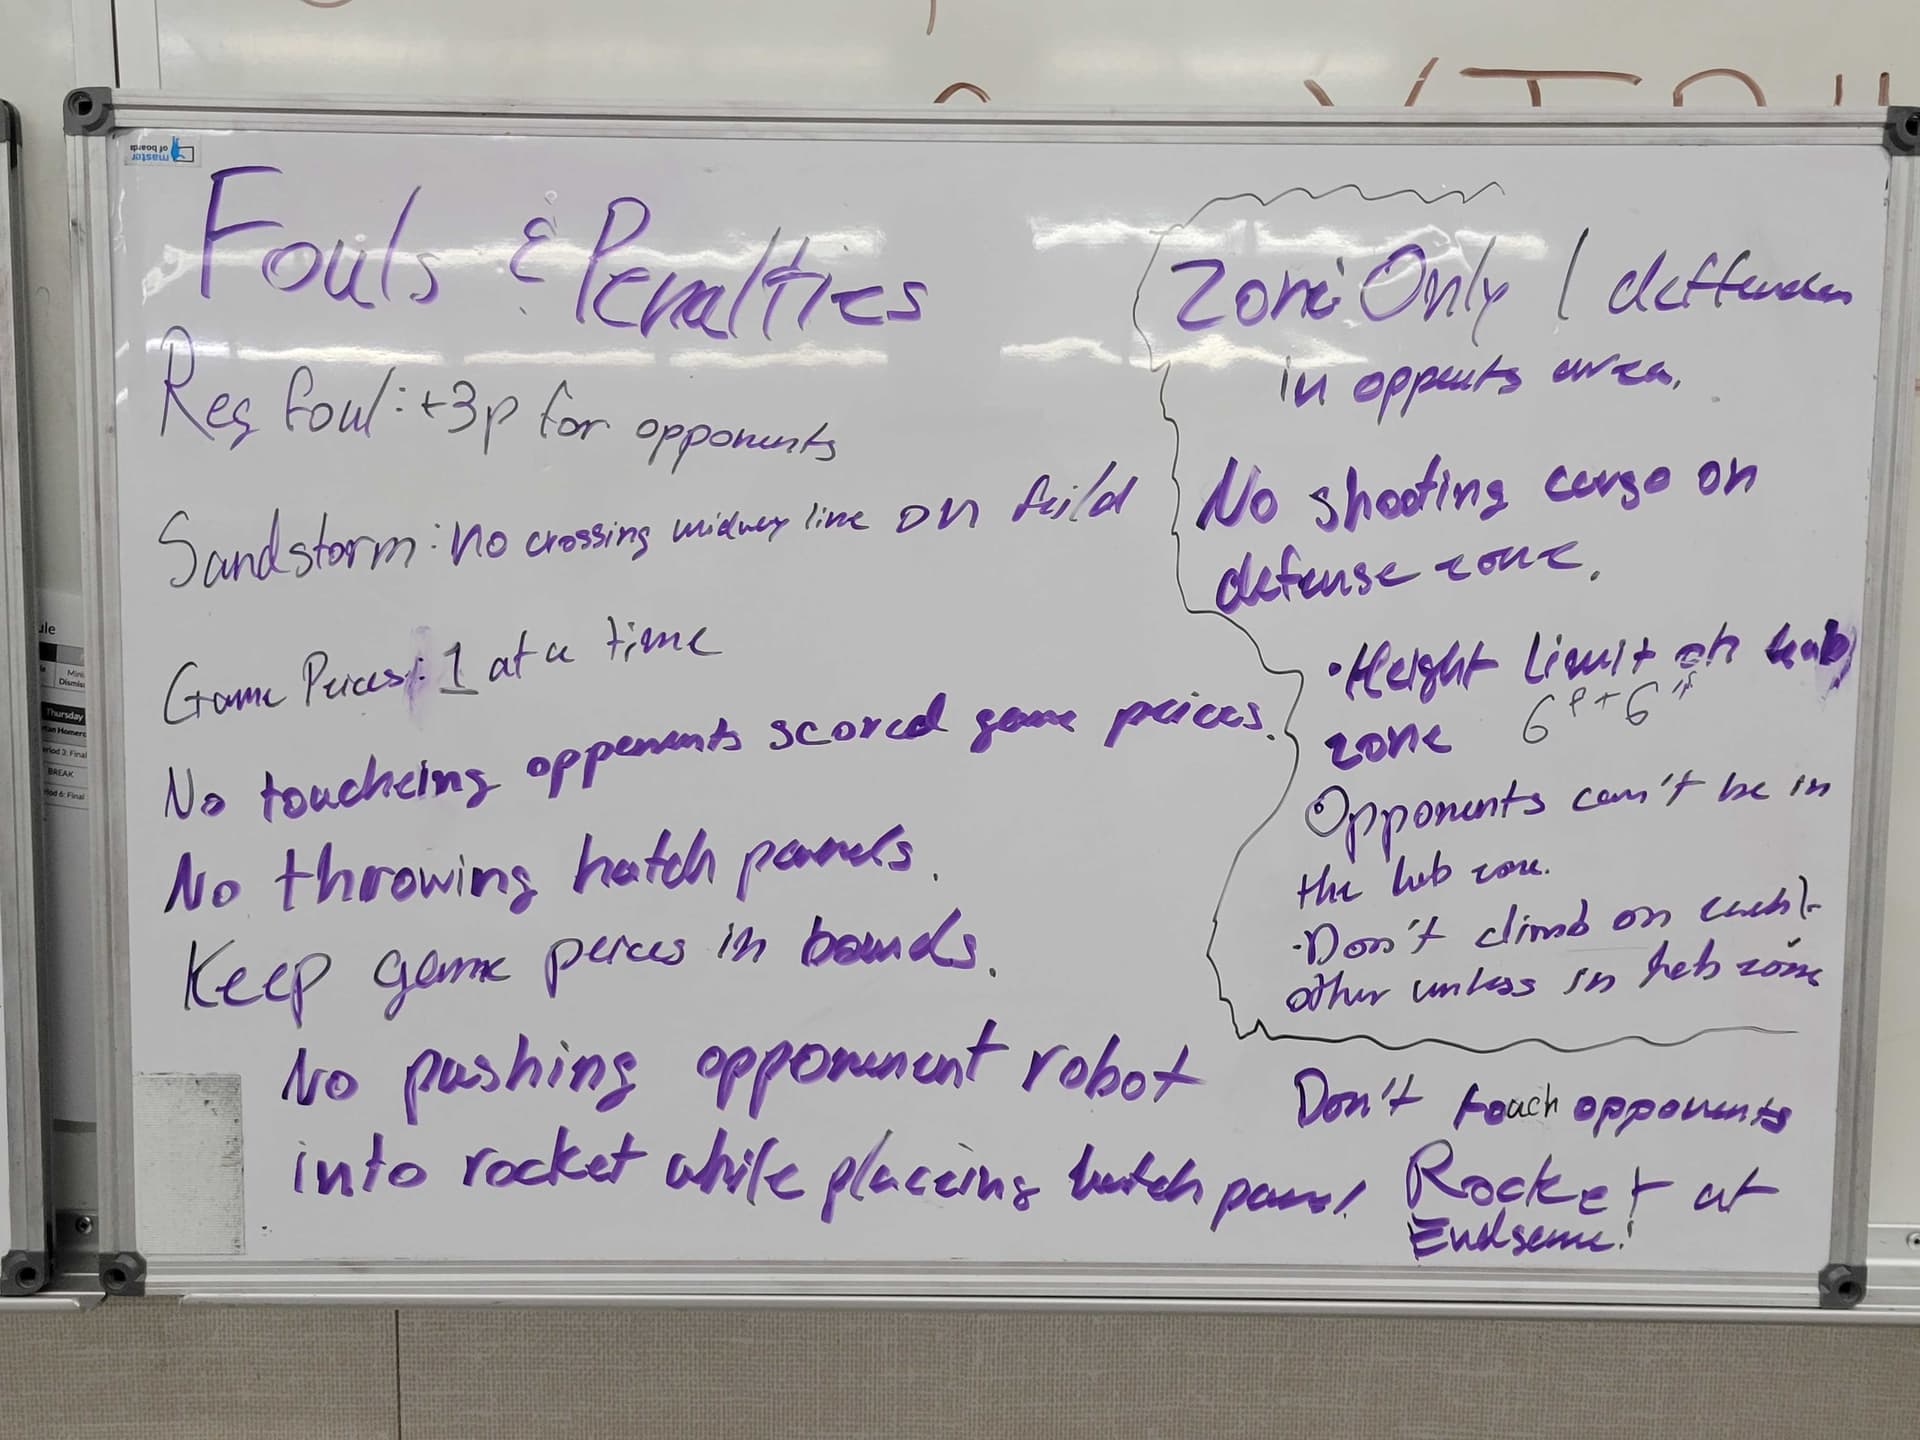 master
of boards
Fouls & Penalties
Reg foul: +3p for opponents
Sandstorm: no crossing midway line on feild
Game Peices: 1 at a time
No toucheing oppenents scored game peices.
No throwing hatch panels.
Keep game peices in bounds.
No pushing opponent robot
into rocket while placeing hatch panel
Zone: Only 1 deffender
in oppents area.
No shooting cargo on
defense zone.
• Height Limit on hab
zone 6ft 6in
Opponents can't be in
the hab zone.
• Don't climb on each
other unless in hab zone
Don't touch opponents
Rocket at
Endgame!
ule
Thursday
eriod 2: Final
BREAK
iod 6: Final